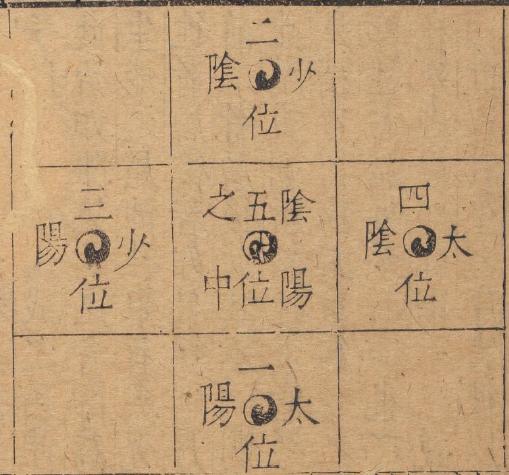 二
少陰
位
四
太陰
位
陰陽
五位
之中
三
少陽
位
一
太陽
位